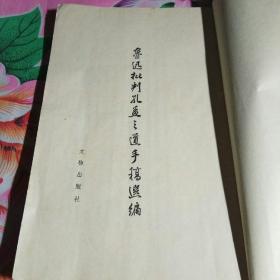 鲁迅批判孔孟之道手稿选编
文物出版社